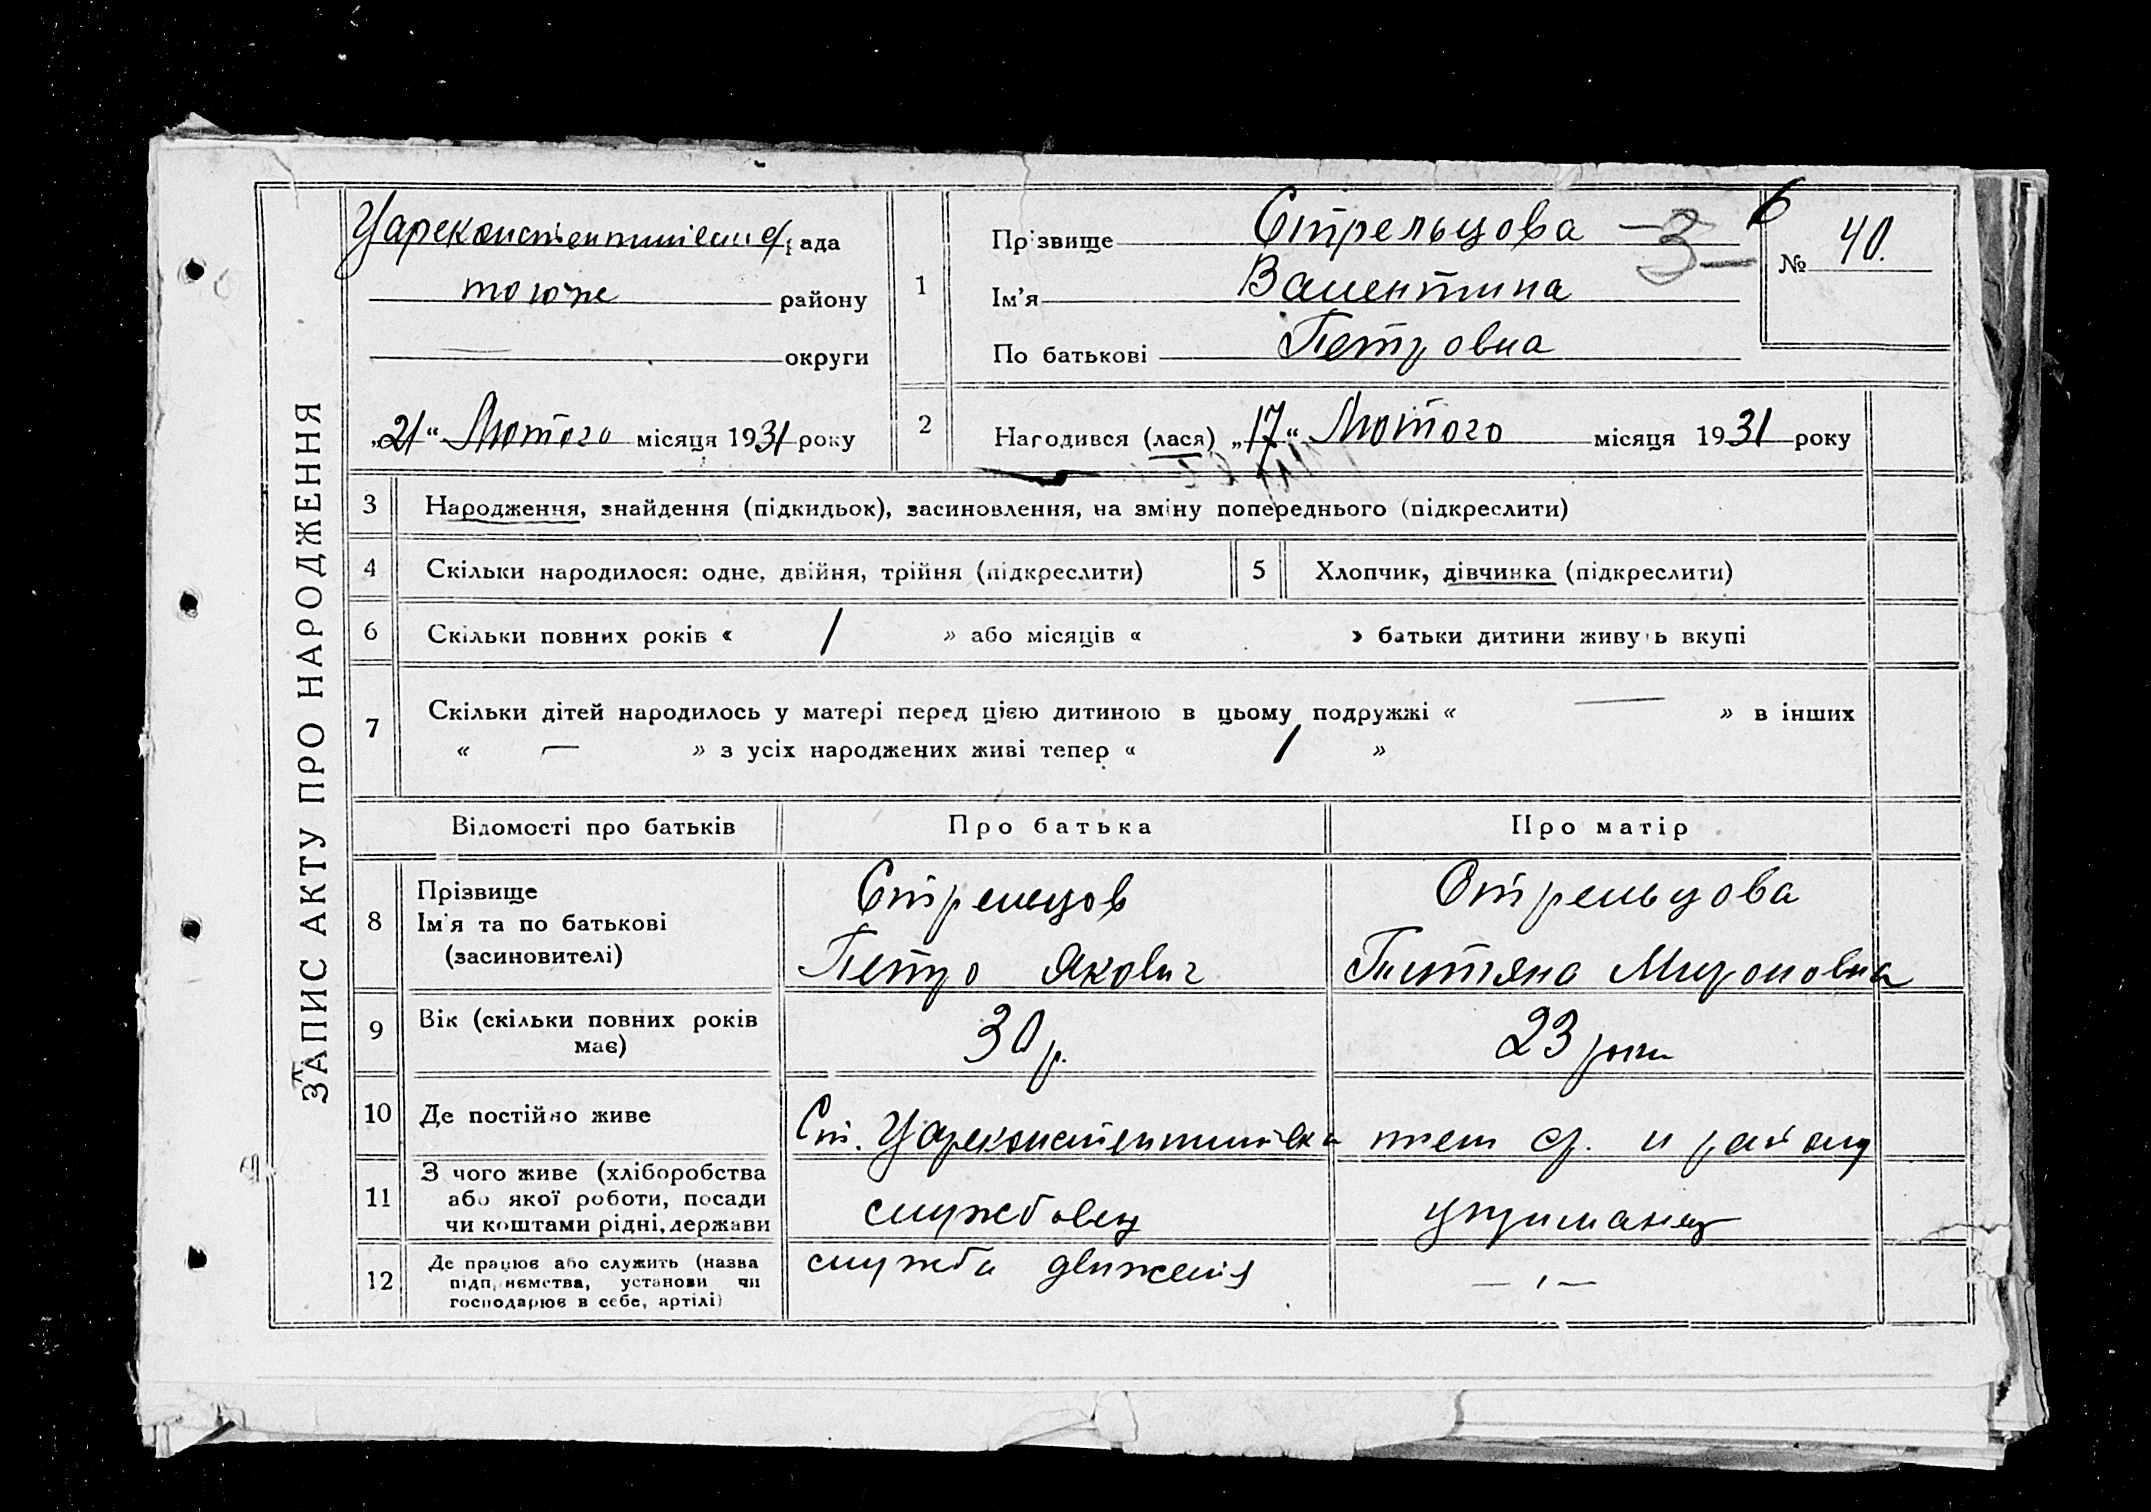 ЗАПИС АКТУ ПРО НАРОДЖЕННЯ
Рада
того ж району
— округи
„21“ Лютого місяця 1931 року
1
Прізвище Стрельцова
Ім’я Валентина
По батькові Петровна
6
3
№ 40.
2
Народився (лася) „17“ Лютого місяця 1931 року
3 Народження, знайдення (підкидьок), засиновлення, на зміну попереднього (підкреслити)
4 Скільки народилося: одне, двійня, трійня (підкреслити)
5 Хлопчик, дівчинка (підкреслити)
6 Скільки повних років « 1 » або місяців « » батьки дитини живуть вкупі
7 Скільки дітей народилось у матері перед цією дитиною в цьому подружжі « — » в інших
« — » з усіх народжених живі тепер « 1 »
Відомості про батьків Про батька Про матір
8 Прізвище
Ім’я та по батькові
(засиновителі)
Стрельцов
Петро Якович
Стрельцова
Татяна Мироновна
9 Вік (скільки повних років
має)
30 р.
23 роки
10 Де постійно живе
Ст. Цареконстентинівка
тієї ср. и району
11 З чого живе (хліборобства
або якої роботи, посади
чи коштами рідні, держави
службовец
утриманец
12 Де працює або служить (назва
підприємства, установи чи
господарює в себе, артілі)
служба движенія
— „ —